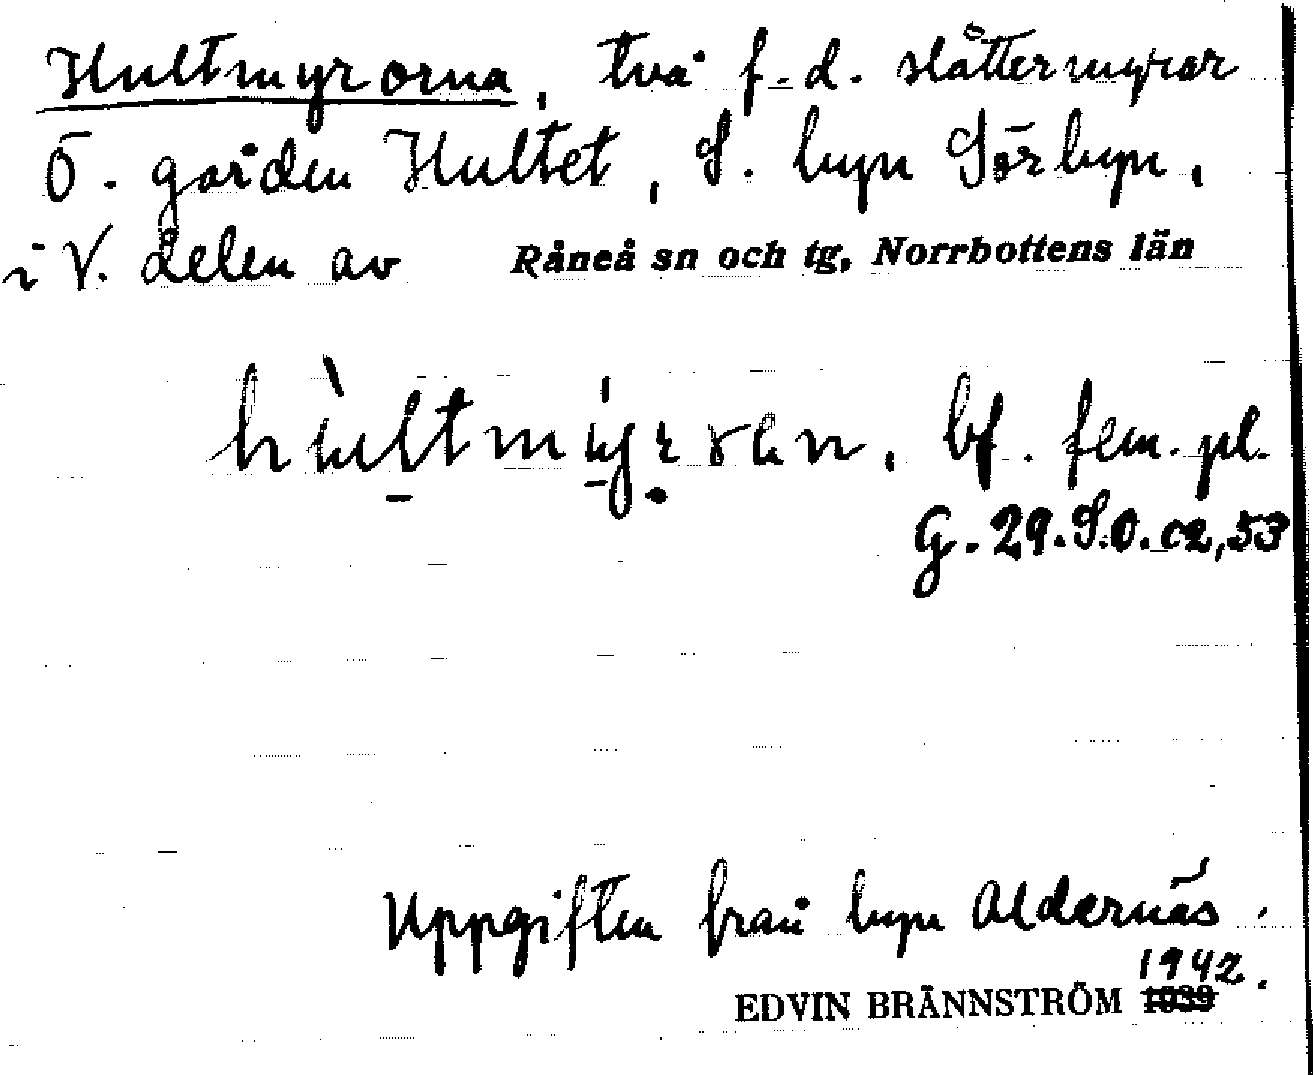 Hultmyrorna, två f.d. slåttermyrar
Ö. gården Hultet, S. byn Sörbyn,
i V. delen av Råneå sn och tg, Norrbottens län
bf. fem. pl.
G. 29. S.O. c2,53
Uppgiften från byn Aldernäs.
1942.
EDVIN BRÄNNSTRÖM 1939